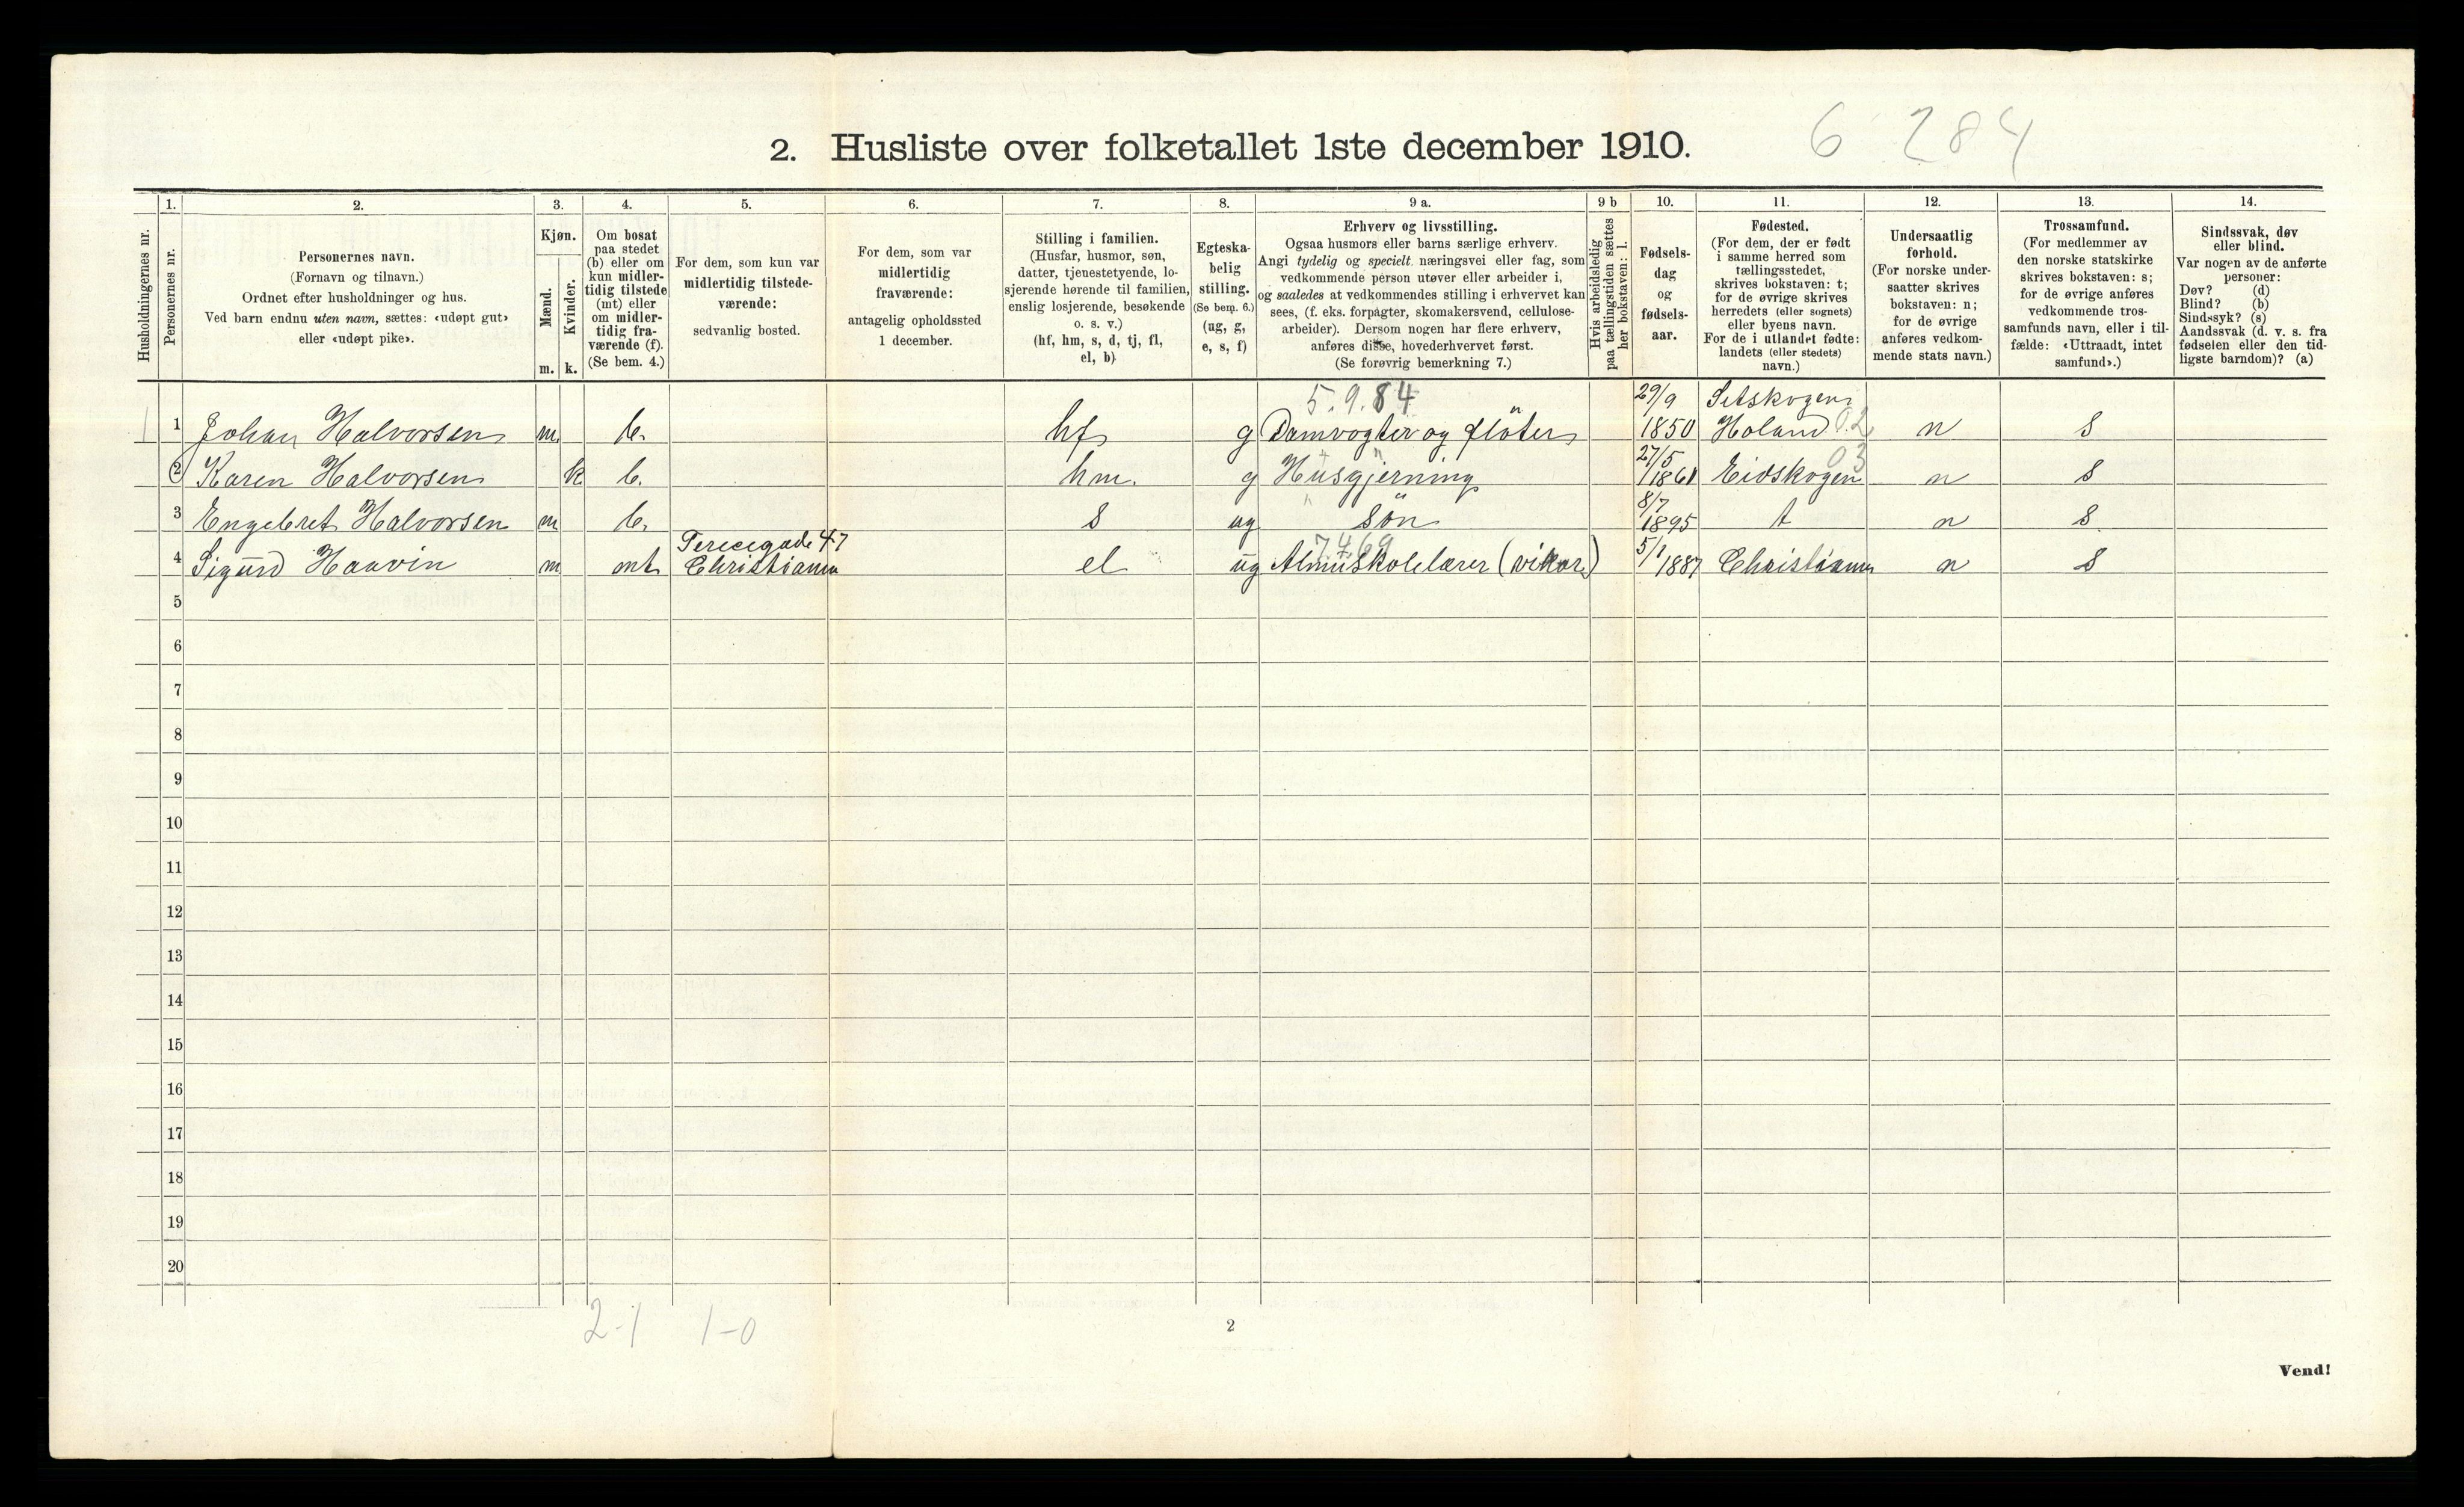 6 284
2. Husliste over folketallet 1ste december 1910.
Husholdningernes nr.
1.
Personernes nr.
2.
Personernes navn.
(Fornavn og tilnavn.)
Ordnet efter husholdninger og hus.
Ved barn endnu uten navn, sættes: «udøpt gut»
eller «udøpt pike».
3.
Kjøn.
Mænd.
Kvinder.
m. k.
4.
Om bosat
paa stedet
(b) eller om
kun midler-
tidig tilstede
(mt) eller
om midler-
tidig fra-
værende (f).
(Se bem. 4.)
5.
For dem, som kun var
midlertidig tilstede-
værende:
sedvanlig bosted.
6.
For dem, som var
midlertidig
fraværende:
antagelig opholdssted
1 december.
7.
Stilling i familien.
(Husfar, husmor, søn,
datter, tjenestetyende, lo-
sjerende hørende til familien,
enslig losjerende, besøkende
o. s. v.)
(hf, hm, s, d, tj, fl,
el, b)
8.
Egteska-
belig
stilling.
(Se bem. 6.)
(ug, g,
e, s, f)
9 a.
Erhverv og livsstilling.
Ogsaa husmors eller barns særlige erhverv.
Angi tydelig og specielt næringsvei eller fag, som
vedkommende person utøver eller arbeider i,
og saaledes at vedkommendes stilling i erhvervet kan
sees, (f. eks. forpagter, skomakersvend, cellulose-
arbeider). Dersom nogen har flere erhverv,
anføres disse, hovederhvervet først.
(Se forøvrig bemerkning 7.)
9 b
Hvis arbeidsledig
paa tællingstiden sættes
her bokstaven: l.
10.
Fødsels-
dag
og
fødsels-
aar.
11.
Fødested.
(For dem, der er født
i samme herred som
tællingsstedet,
skrives bokstaven: t;
for de øvrige skrives
herredets (eller sognets)
eller byens navn.
For de i utlandet fødte:
landets (eller stedets)
navn.)
12.
Undersaatlig
forhold.
(For norske under-
saatter skrives
bokstaven: n;
for de øvrige
anføres vedkom-
mende stats navn.)
13.
Trossamfund.
(For medlemmer av
den norske statskirke
skrives bokstaven: s;
for de øvrige anføres
vedkommende tros-
samfunds navn, eller i til-
fælde: «Uttraadt, intet
samfund».)
14.
Sindssvak, døv
eller blind.
Var nogen av de anførte
personer:
Døv? (d)
Blind? (b)
Sindssyk? (s)
Aandssvak (d. v. s. fra
fødselen eller den tid-
ligste barndom)? (a)
5.9.84 29/9 Setskogen
1 1 Johan Halvorsen m. b. hf g Damvogter og fløter 1850 Høland 02 n s
27/5 03
2 Karen Halvorsen k b. hm. g Husgjerning 1861 Eidskogen n s
8/7
3 Engebret Halvorsen m b. s ug søn 1895 t n s
47 7.4.69 5/1
4 Sigurd Haavin m mt Christiania el ug Almuskolelærer (vikar) 1887 Christiania n s
5
6
7
8
9
10
11
12
13
14
15
16
17
18
19
20
2-1 1-0
2
Vend!